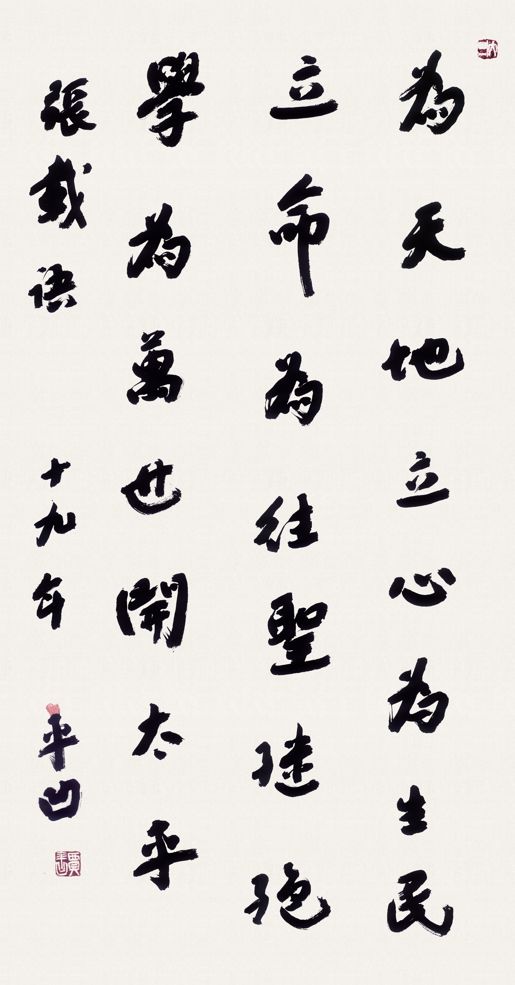 為天地立心為生民
立命為往聖继绝
學為萬世開太平
張載語 十九年 平凹